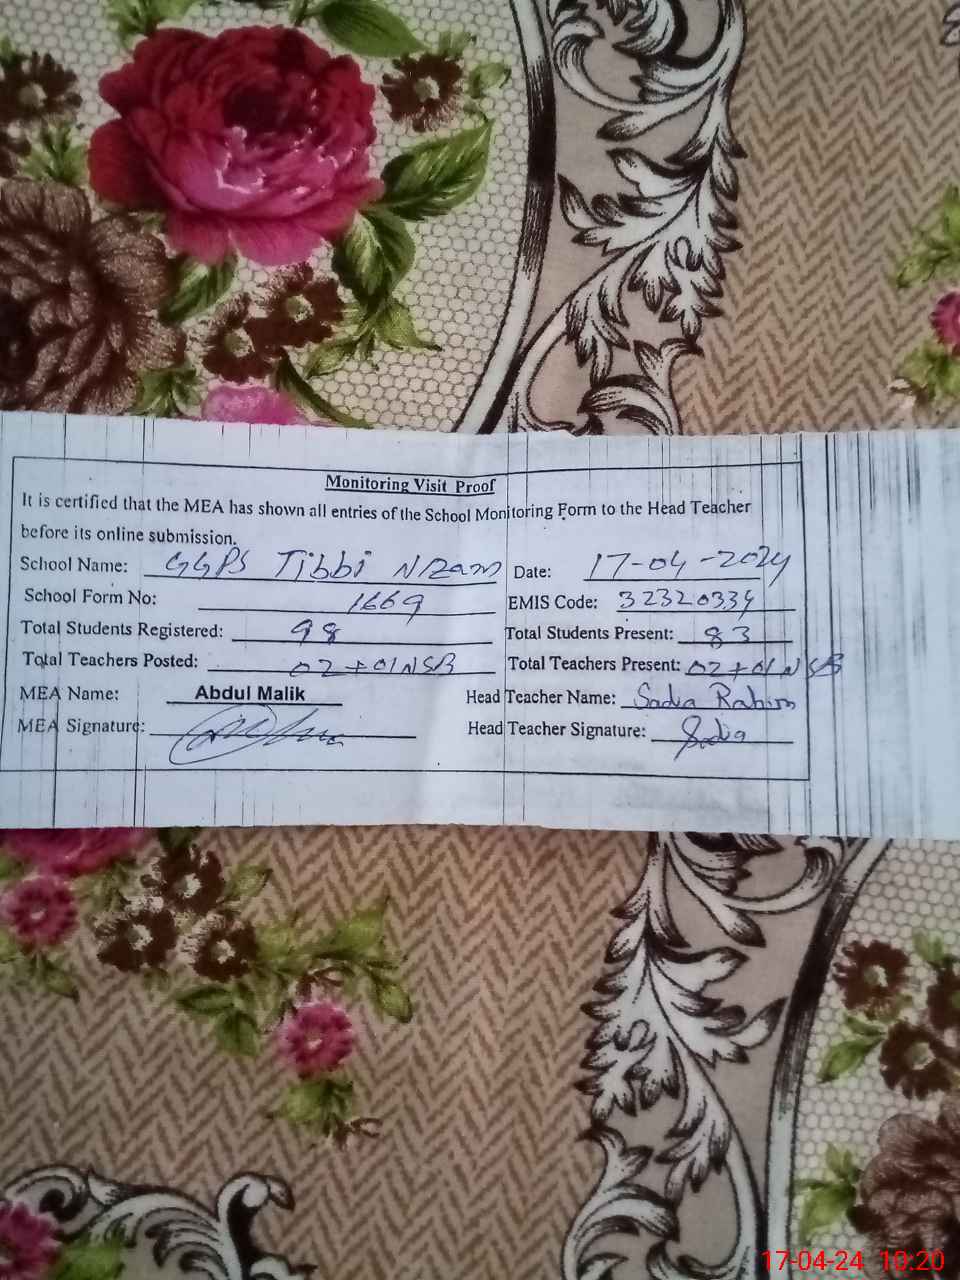 Monitoring Visit Proof
It is certified that the MEA has shown all entries of the School Monitoring Form to the Head Teacher
before its online submission.
School Name: GGPS Tibbi Nizam Date: 17-04-2024
School Form No: 1669 EMIS Code: 32320334
Total Students Registered: 98 Total Students Present: 83
Total Teachers Posted: 02+01NSB Total Teachers Present: 02+01NSB
MEA Name: Abdul Malik Head Teacher Name: Sadia Rahim
MEA Signature: Head Teacher Signature: Sadia
17-04-24 10:20